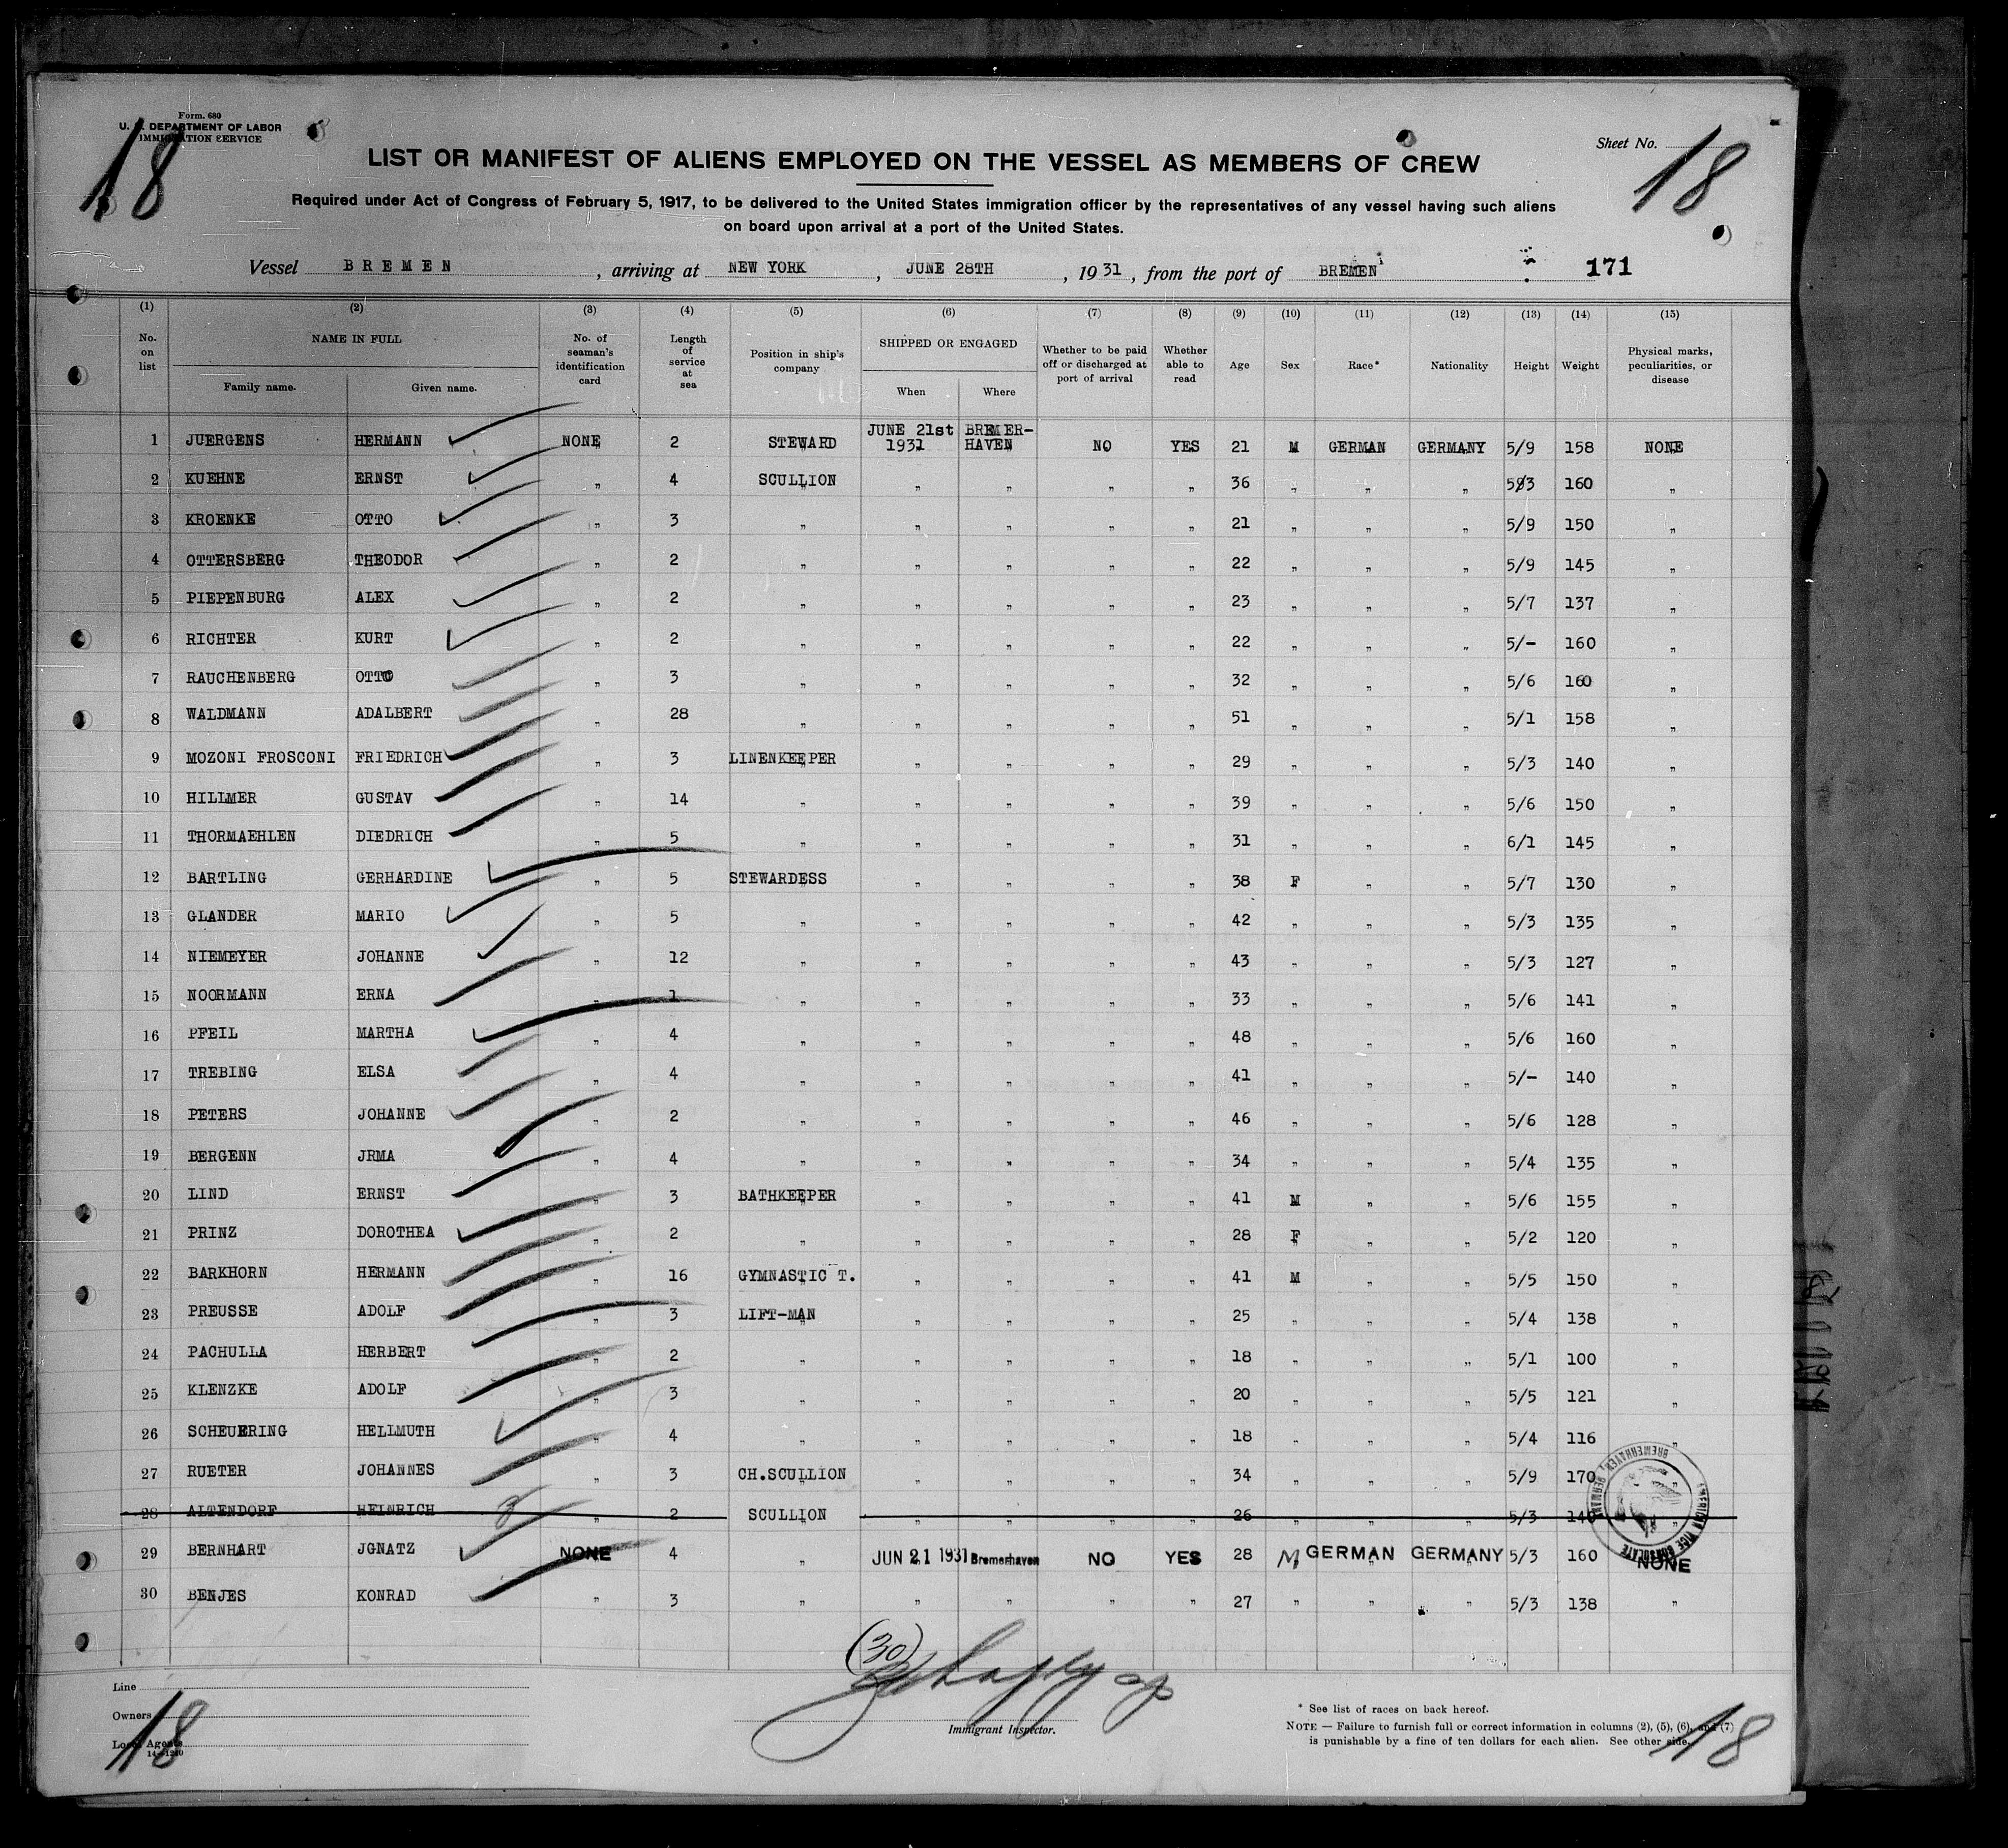 Form. 680
U. S. DEPARTMENT OF LABOR
IMMIGRATION SERVICE
18
Sheet No. 18
LIST OR MANIFEST OF ALIENS EMPLOYED ON THE VESSEL AS MEMBERS OF CREW
Required under Act of Congress of February 5, 1917, to be delivered to the United States immigration officer by the representatives of any vessel having such aliens
on board upon arrival at a port of the United States.
Vessel BREMEN, arriving at NEW YORK, JUNE 28TH, 1931, from the port of BREMEN 171
(1) (2) (3) (4) (5) (6) (7) (8) (9) (10) (11) (12) (13) (14) (15)
No. on list NAME IN FULL Family name. Given name. No. of seaman's identification card Length of service at sea Position in ship's company SHIPPED OR ENGAGED When Where Whether to be paid off or discharged at port of arrival Whether able to read Age Sex Race* Nationality Height Weight Physical marks, peculiarities, or disease
1 JUERGENS HERMANN NONE 2 STEWARD JUNE 21st 1931 BREMER-HAVEN NO YES 21 M GERMAN GERMANY 5/9 158 NONE
2 KUEHNE ERNST " 4 SCULLION " " " " 36 " " " 5/3 160 "
3 KROENKE OTTO " 3 " " " " " 21 " " " 5/9 150 "
4 OTTERSBERG THEODOR " 2 " " " " " 22 " " " 5/9 145 "
5 PIEPENBURG ALEX " 2 " " " " " 23 " " " 5/7 137 "
6 RICHTER KURT " 2 " " " " " 22 " " " 5/- 160 "
7 RAUCHENBERG OTTO " 3 " " " " " 32 " " " 5/6 160 "
8 WALDMANN ADALBERT " 28 " " " " " 51 " " " 5/1 158 "
9 MOZONI FROSCONI FRIEDRICH " 3 LINENKEEPER " " " " 29 " " " 5/3 140 "
10 HILLMER GUSTAV " 14 " " " " " 39 " " " 5/6 150 "
11 THORMAEHLEN DIEDRICH " 5 " " " " " 31 " " " 6/1 145 "
12 BARTLING GERHARDINE " 5 STEWARDESS " " " " 38 F " " 5/7 130 "
13 GLANDER MARIO " 5 " " " " " 42 " " " 5/3 135 "
14 NIEMEYER JOHANNE " 12 " " " " " 43 " " " 5/3 127 "
15 NOORMANN ERNA " 1 " " " " " 33 " " " 5/6 141 "
16 PFEIL MARTHA " 4 " " " " " 48 " " " 5/6 160 "
17 TREBING ELSA " 4 " " " " " 41 " " " 5/- 140 "
18 PETERS JOHANNE " 2 " " " " " 46 " " " 5/6 128 "
19 BERGENN JRMA " 4 " " " " " 34 " " " 5/4 135 "
20 LIND ERNST " 3 BATHKEEPER " " " " 41 M " " 5/6 155 "
21 PRINZ DOROTHEA " 2 " " " " " 28 F " " 5/2 120 "
22 BARKHORN HERMANN " 16 GYMNASTIC T. " " " " 41 M " " 5/5 150 "
23 PREUSSE ADOLF " 3 LIFT-MAN " " " " 25 " " " 5/4 138 "
24 PACHULLA HERBERT " 2 " " " " " 18 " " " 5/1 100 "
25 KLENZKE ADOLF " 3 " " " " " 20 " " " 5/5 121 "
26 SCHEUERING HELLMUTH " 4 " " " " " 18 " " " 5/4 116 "
27 RUETER JOHANNES " 3 CH.SCULLION " " " " 34 " " " 5/9 170 "
28 ALTENDORF HEINRICH " 2 SCULLION " " " " 26 " " " 5/3 140 "
29 BERNHART JGNATZ NONE 4 " JUN 21 1931 Bremerhaven NO YES 28 M GERMAN GERMANY 5/3 160 NONE
30 BENJES KONRAD " 3 " " " " " 27 " " " 5/3 138 "
AMERICAN VICE CONSULATE BREMERHAVEN, GERMANY
(30)
Line
Owners
Local Agents
14-1240
18
Immigrant Inspector.
* See list of races on back hereof.
NOTE — Failure to furnish full or correct information in columns (2), (5), (6), and (7)
is punishable by a fine of ten dollars for each alien. See other side.
18